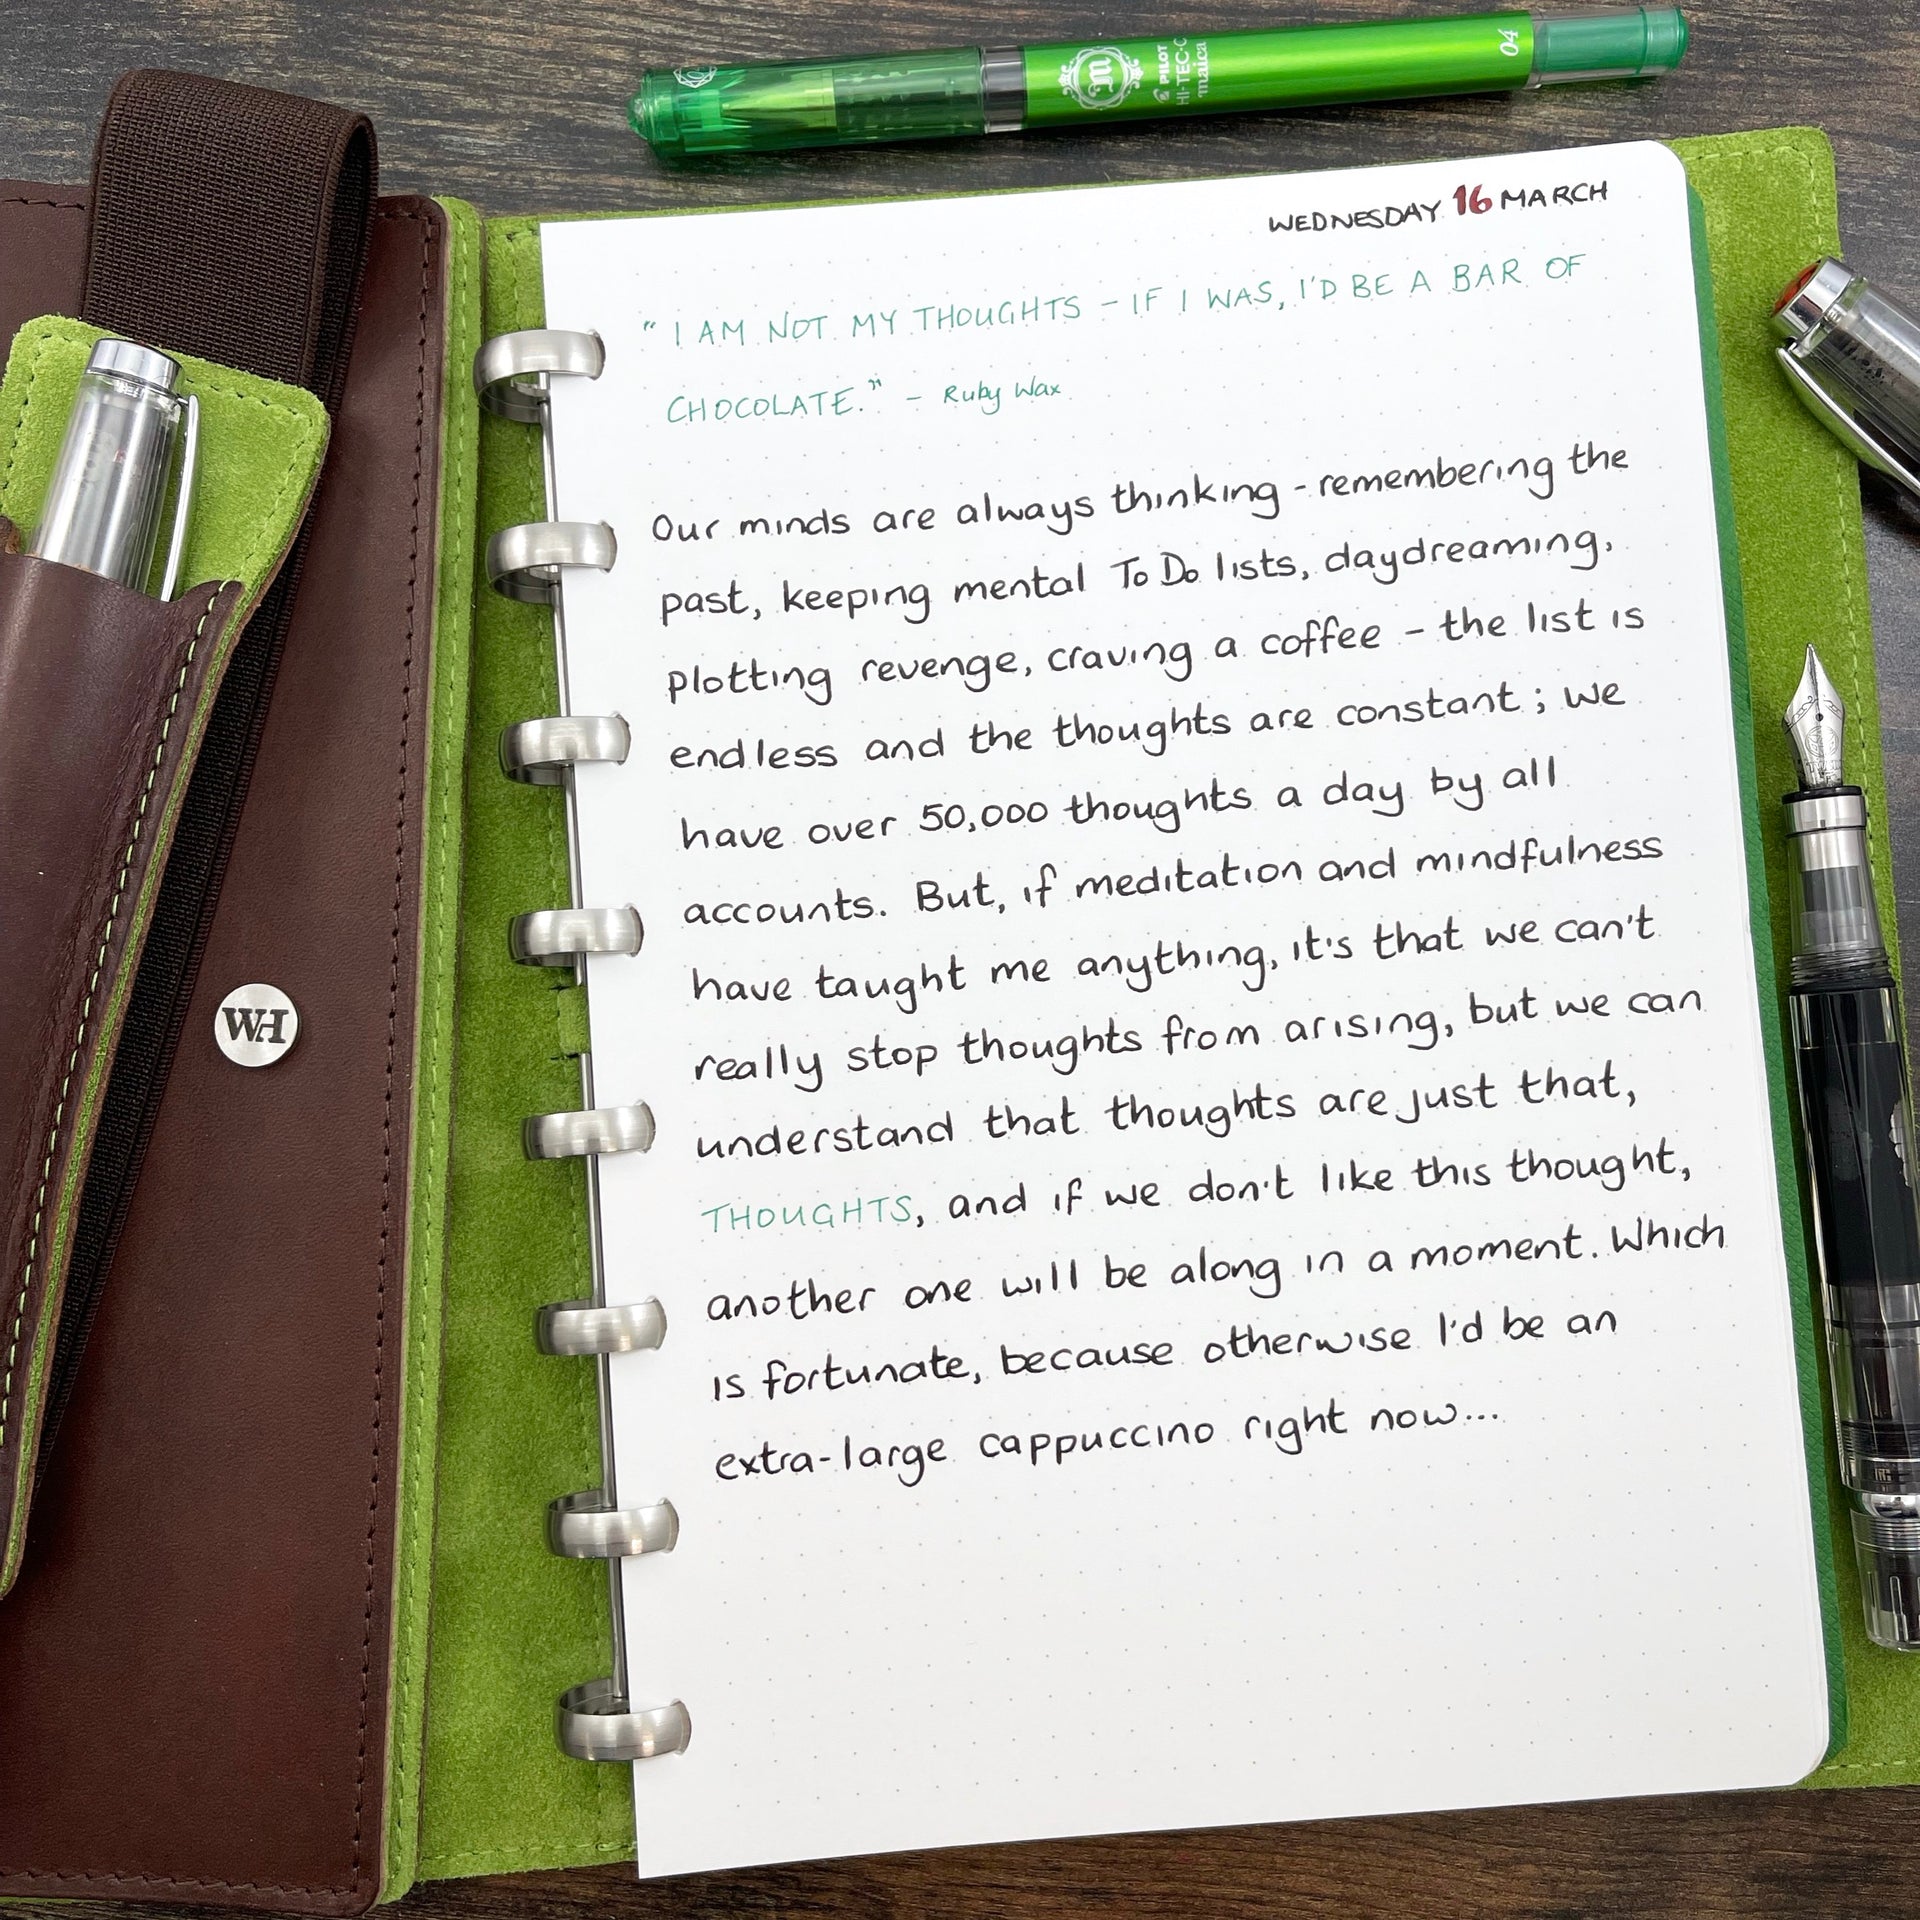 PILOT
HI-TEC-C
maica
04
WEDNESDAY 16 MARCH
"I AM NOT MY THOUGHTS - IF I WAS, I'D BE A BAR OF
CHOCOLATE." - Ruby Wax
Our minds are always thinking - remembering the
past, keeping mental To Do lists, daydreaming,
plotting revenge, craving a coffee - the list is
endless and the thoughts are constant; we
have over 50,000 thoughts a day by all
accounts. But, if meditation and mindfulness
have taught me anything, it's that we can't
really stop thoughts from arising, but we can
understand that thoughts are just that,
THOUGHTS, and if we don't like this thought,
another one will be along in a moment. Which
is fortunate, because otherwise I'd be an
extra-large cappuccino right now...
WH